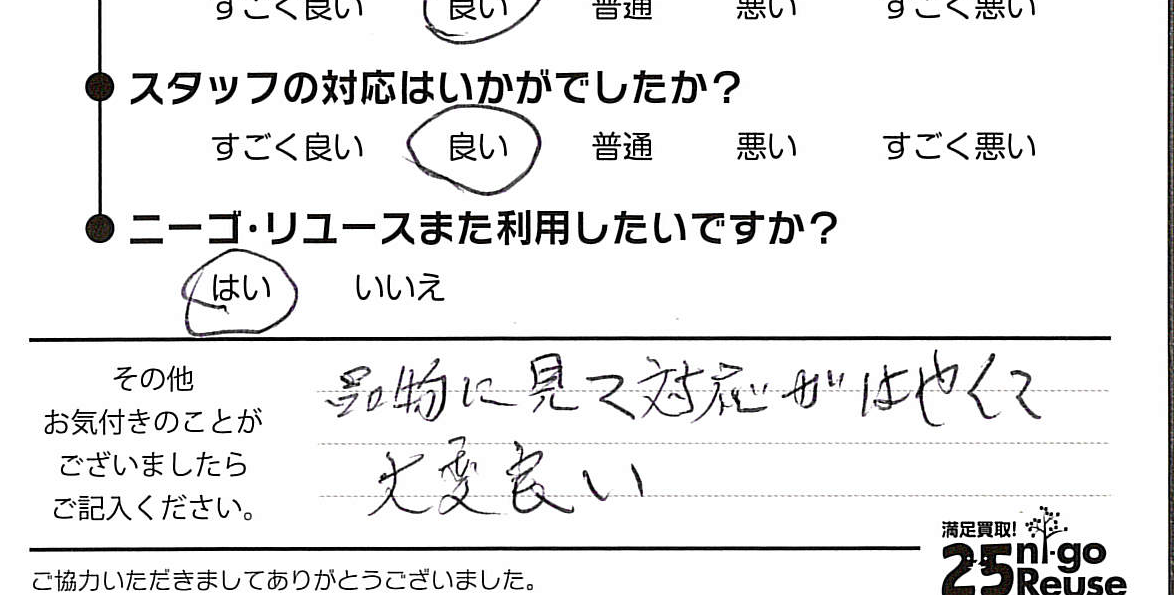 すごく良い 良い 普通 悪い すごく悪い
スタッフの対応はいかがでしたか?
すごく良い 良い 普通 悪い すごく悪い
ニーゴ・リユースまた利用したいですか?
はい いいえ
その他
お気付きのことが
ございましたら
ご記入ください。
品物に見て対応がはやくて
大変良い
満足買取!
25 ni-go
Reuse
ご協力いただきましてありがとうございました。